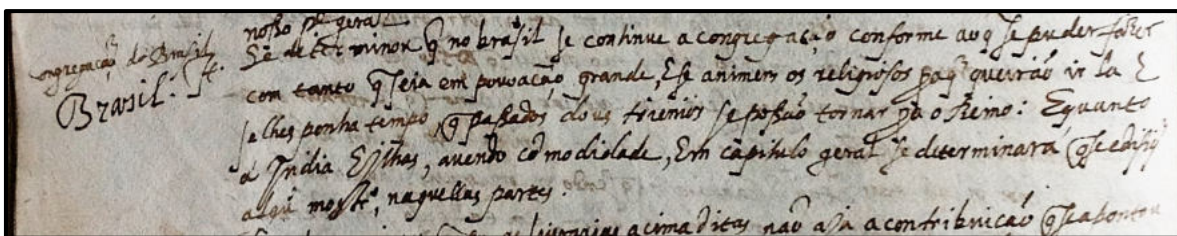 nosso pe geral
Congregação do Brasil
Brasil.
Se determinou q̃ no brasil se continue a congregação conforme ao q̃ se puder fazer
com tanto q̃ seia em povoação grande, E se animem os religiosos pa q̃ queirão ir la E
se lhes ponha tempo, q̃ passados dous trienios se possão tornar pa o Reino: E quanto
a India E Ilhas, avendo cõmodidade, Em capitulo geral se determinará q̃ se edifiq̃
algũ mostro, naquellas partes.
acima ditas não aja a contribuicão q̃ se apontou